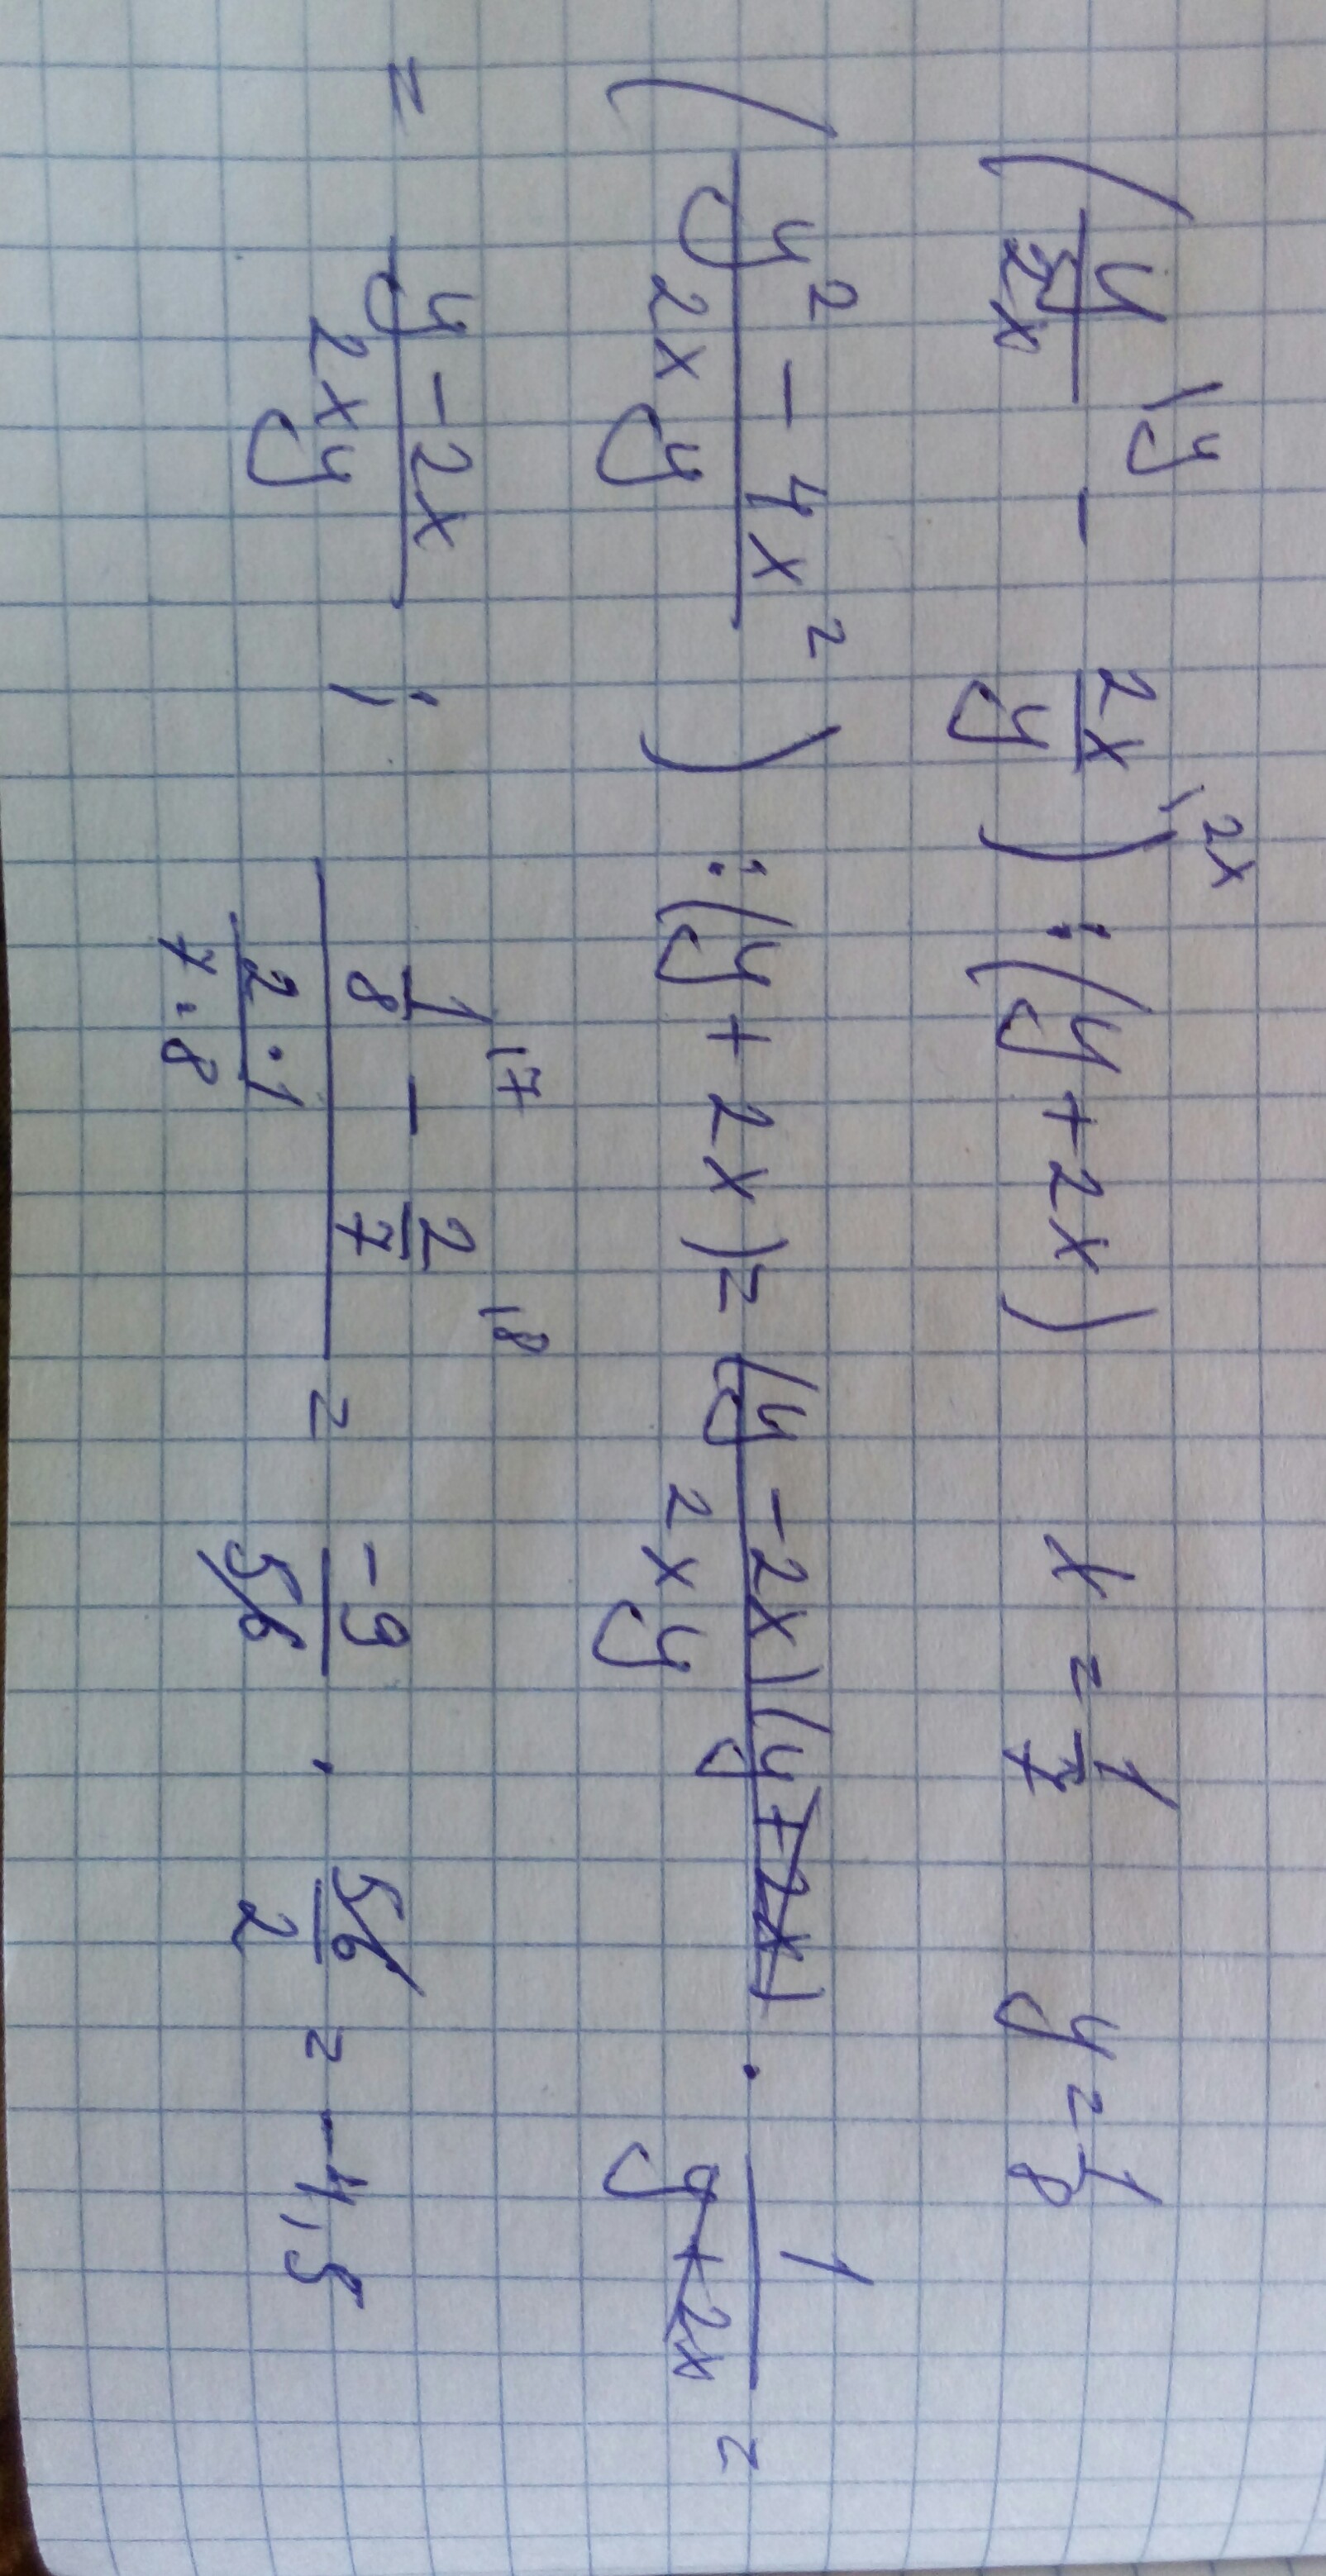 (y/2x \y - 2x/y \2x) : (y + 2x) x = 1/7 y = 1/8
(y² - 4x²/2xy) : (y + 2x) = (y - 2x)(y + 2x)/2xy · 1/y + 2x =
= y - 2x/2xy ; 1/8 \7 - 2/7 \8 / 2·1/7·8 = -9/56 · 56/2 = -4,5